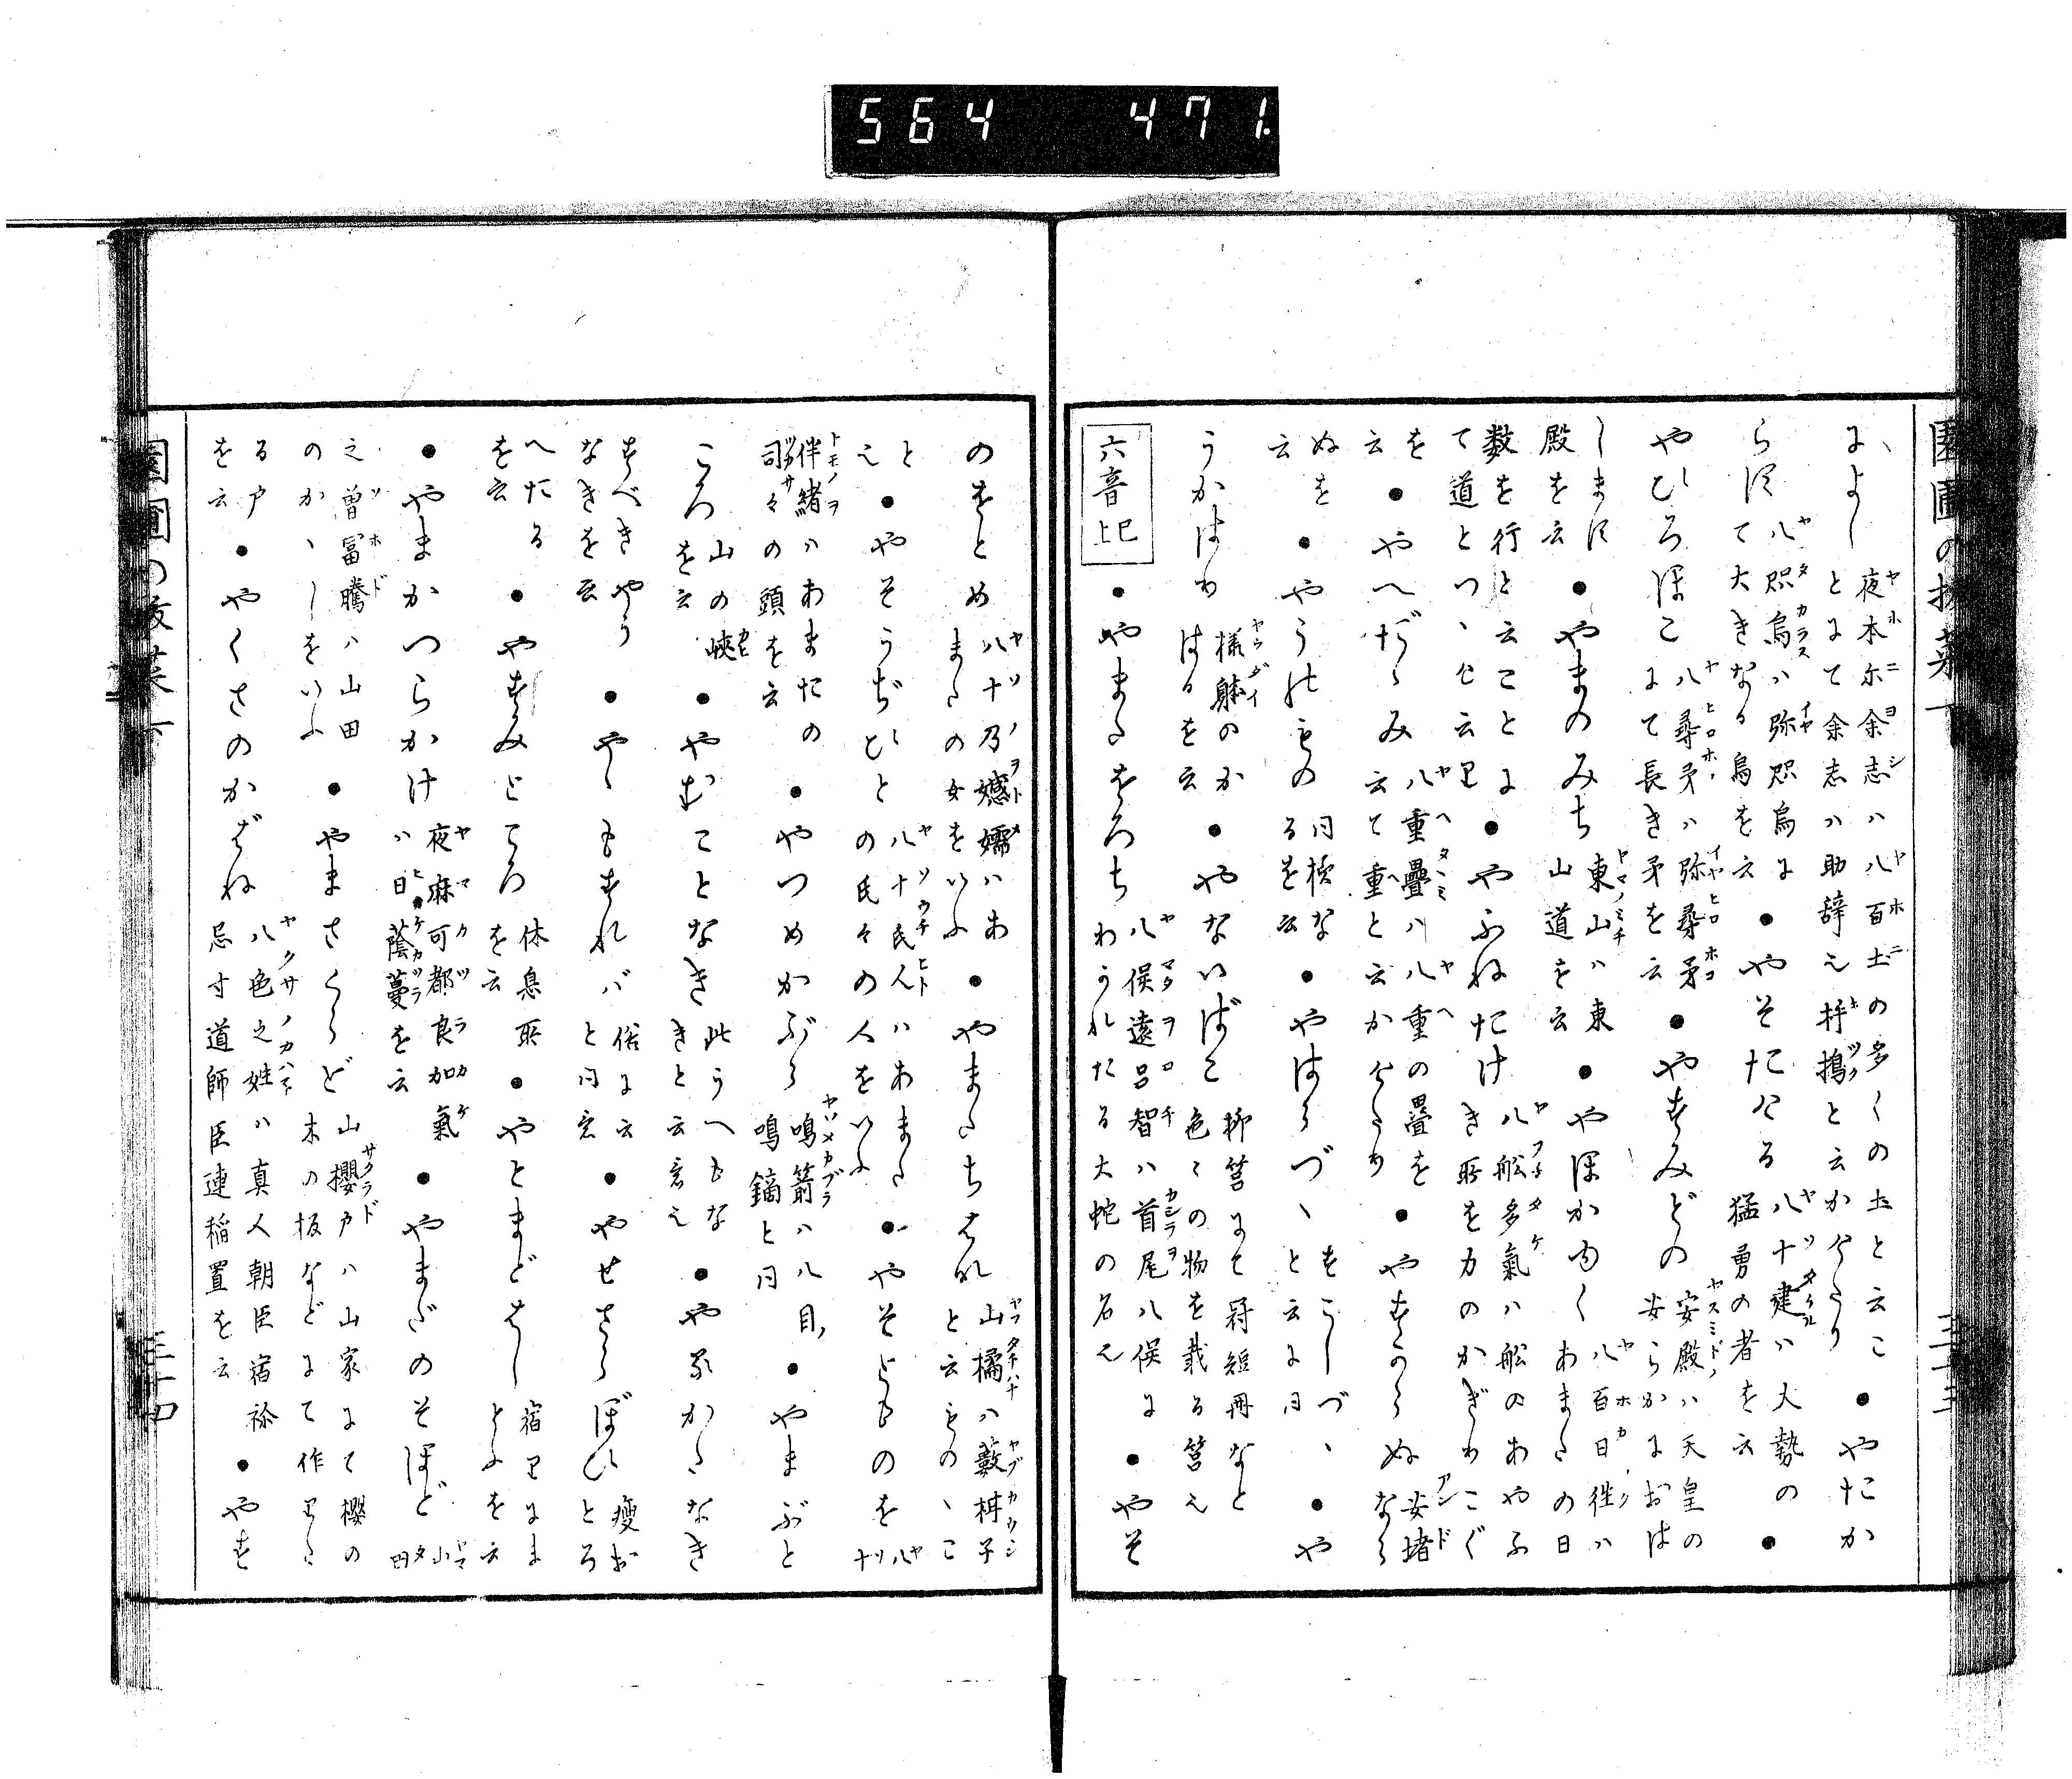 564 471
によし 夜本尓余志ハ八百土の多くの土と云こ
とにて余志ハ助辞也杵搗と云かゝり ●やたか
らす 八咫烏ハ弥咫烏に
て大きなる烏を云 ●やそたける 八十建ハ大勢の
猛勇の者を云 ●
やひろほこ 八尋矛ハ弥尋矛
にて長き矛を云 ●やすみどの 安殿ハ天皇の
安らかにおは
します
殿を云 ●やまのみち 東山ハ東
山道を云 ●やほかゆく 八百日往ハ
あまたの日
数を行と云ことに
て道とつゝけ云り ●やふねたけ 八舩多氣ハ舩のあやふ
き所を力のかぎりこぐ
を
云 ●やへだゝみ 八重疊ハ八重の畳を
云て重と云かゝり ●やすからぬ 安堵
なら
ぬを
云 ●やうれもの 同様な
るを云 ●やはらづゝ をこしづゝ
と云に同 ●や
うかはり 様躰のか
はるを云 ●やないばこ 柳筥にて冠短冊なと
色々の物を載る筥也
六音上巳 ●やまたをろち 八俣遠呂智ハ首尾八俣に
わかれたる大蛇の名也 ●やそ
のをとめ 八十乃嬺嬬ハあ
またの女をいふ ●やまたちばな 山橘ハ藪柑子
と云ものゝこ
と
也 ●やそうぢひと 八十氏人ハあまた
の氏々の人をいふ ●やそとものを 八
十
伴緒ハあまたの
司々の頭を云 ●やつめかぶら 鳴箭ハ八目
鳴鏑と同 ●やまぶと
ころ 山の峡
を云 ●やむことなき 此うへもな
きと云意也 ●やるかたなき
すべきやう
なきを云 ●やゝもすれバ 俗に云
と同意 ●やせさらぼひ 瘦お
とろ
へたる
を云 ●やすみところ 休息所
を云 ●やとまどはし 宿りにま
とふを云
●やまかつらかけ 夜麻可都良加氣
ハ日蔭蔓を云 ●やまだのそほど 山
田
之曽冨騰ハ山田
のかゝしをいふ ●やまさくらど 山櫻戸ハ山家にて櫻の
木の板などにて作りた
る戸
を云 ●やくさのかばね 八色之姓ハ真人朝臣宿祢
忌寸道師臣連稲置を云 ●やす